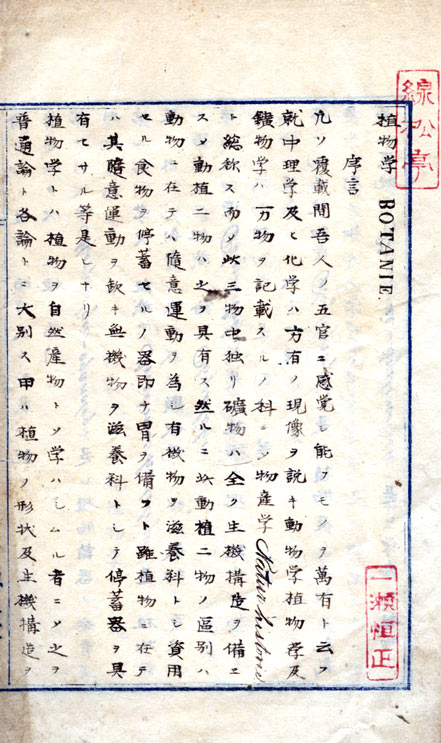 植物学 BOTANIE.
序言
凡ソ覆載間吾人ノ五官ニ感覚シ能フモノヲ萬有ト云フ
就中理学及ヒ化学ハ万有ノ現像ヲ説キ動物学植物学及
鑛物学ハ万物ヲ記載スルノ科ニシテ物産学Naturhistorie
ト総称ス而メ此三物中独リ礦物ハ全ク生機構造ヲ備ヱ
スメ動植二物ハ之ヲ具有ス然ルニ此動植二物ノ區別ハ
動物ニ在テハ随意運動ヲ為シ有機物ヲ滋養料トシ資用
セル食物ヲ停蓄セルノ器即チ胃ヲ備フト雖植物ニ在テ
ハ其随意運動ヲ欠キ無機物ヲ滋養料トシテ停蓄器ヲ具
有セサル等是レナリ
植物学トハ植物ヲ自然産物トメ学ハシムル者ニメ之ヲ
普通論ト各論トニ大別ス甲ハ植物ノ形状及生機構造ヲ
綠松亭
一瀬恒正